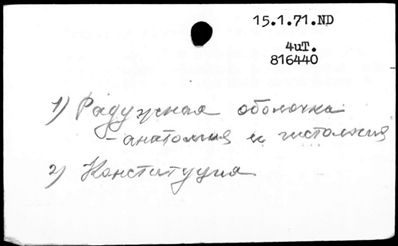 15.1.71.ND
4иТ.
816440
1) Радужная оболочка
- анатомия и гистология
2) Конституция